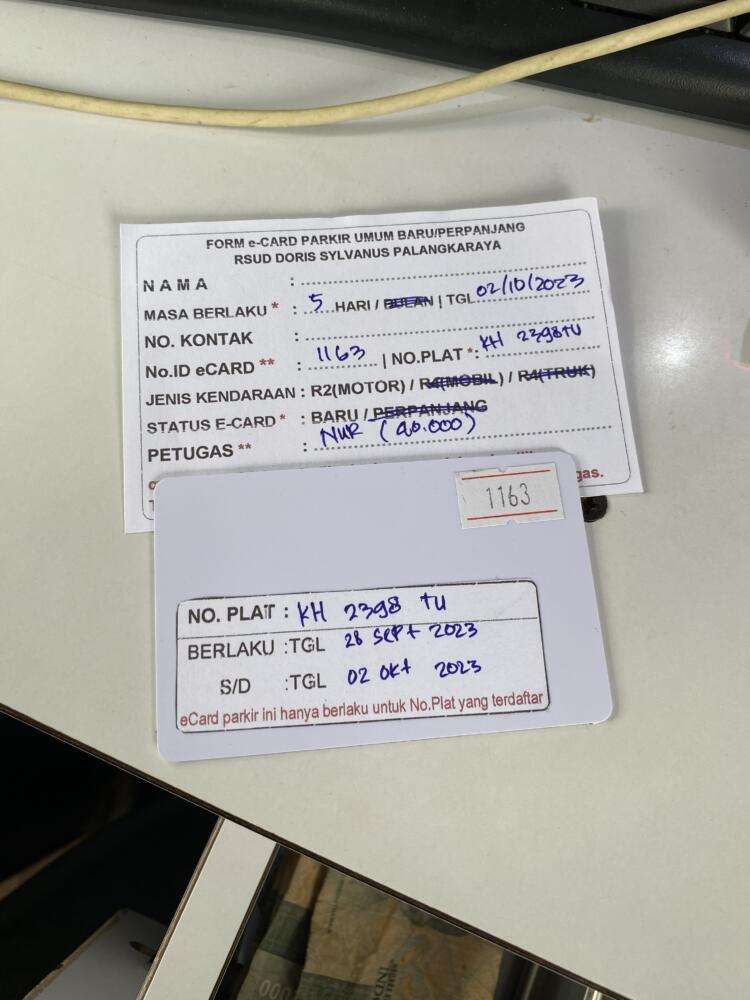 FORM e-CARD PARKIR UMUM BARU/PERPANJANG
RSUD DORIS SYLVANUS PALANGKARAYA
NAMA :
MASA BERLAKU * : 5 HARI / BULAN | TGL 02/10/2023
NO. KONTAK :
No.ID eCARD ** : 1163 | NO.PLAT *: KH 2398 TU
JENIS KENDARAAN : R2(MOTOR) / R4(MOBIL) / R4(TRUK)
STATUS E-CARD * : BARU / PERPANJANG
PETUGAS ** : NUR (20.000)
gas.
1163
NO. PLAT : KH 2398 TU
BERLAKU :TGL 28 SEPT 2023
S/D :TGL 02 OKT 2023
eCard parkir ini hanya berlaku untuk No.Plat yang terdaftar